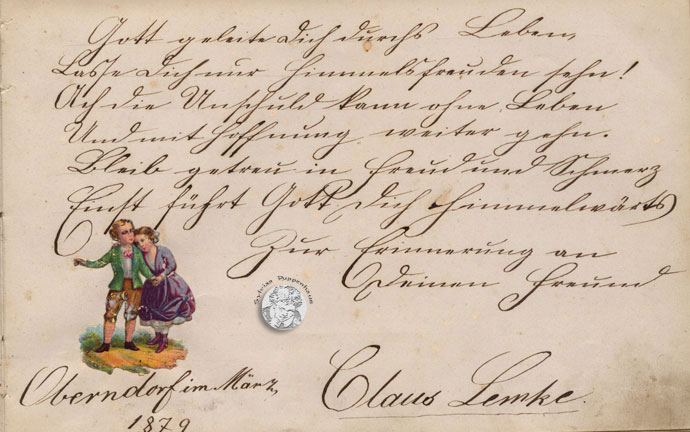 Gott geleite Dich durchs Leben,
Lasse Dich nur Himmelsfreuden sehn!
Ach die Unschuld kann ohne Leben
Und mit Hoffnung weiter gehn.
Bleib getreu in Freud und Schmerz
Einst führt Gott Dich himmelwärts
Zur Erinnerung an
Deinen Freund
Sylvias Puppenhaus
Oberndorf im März,
1879
Claus Lemke.